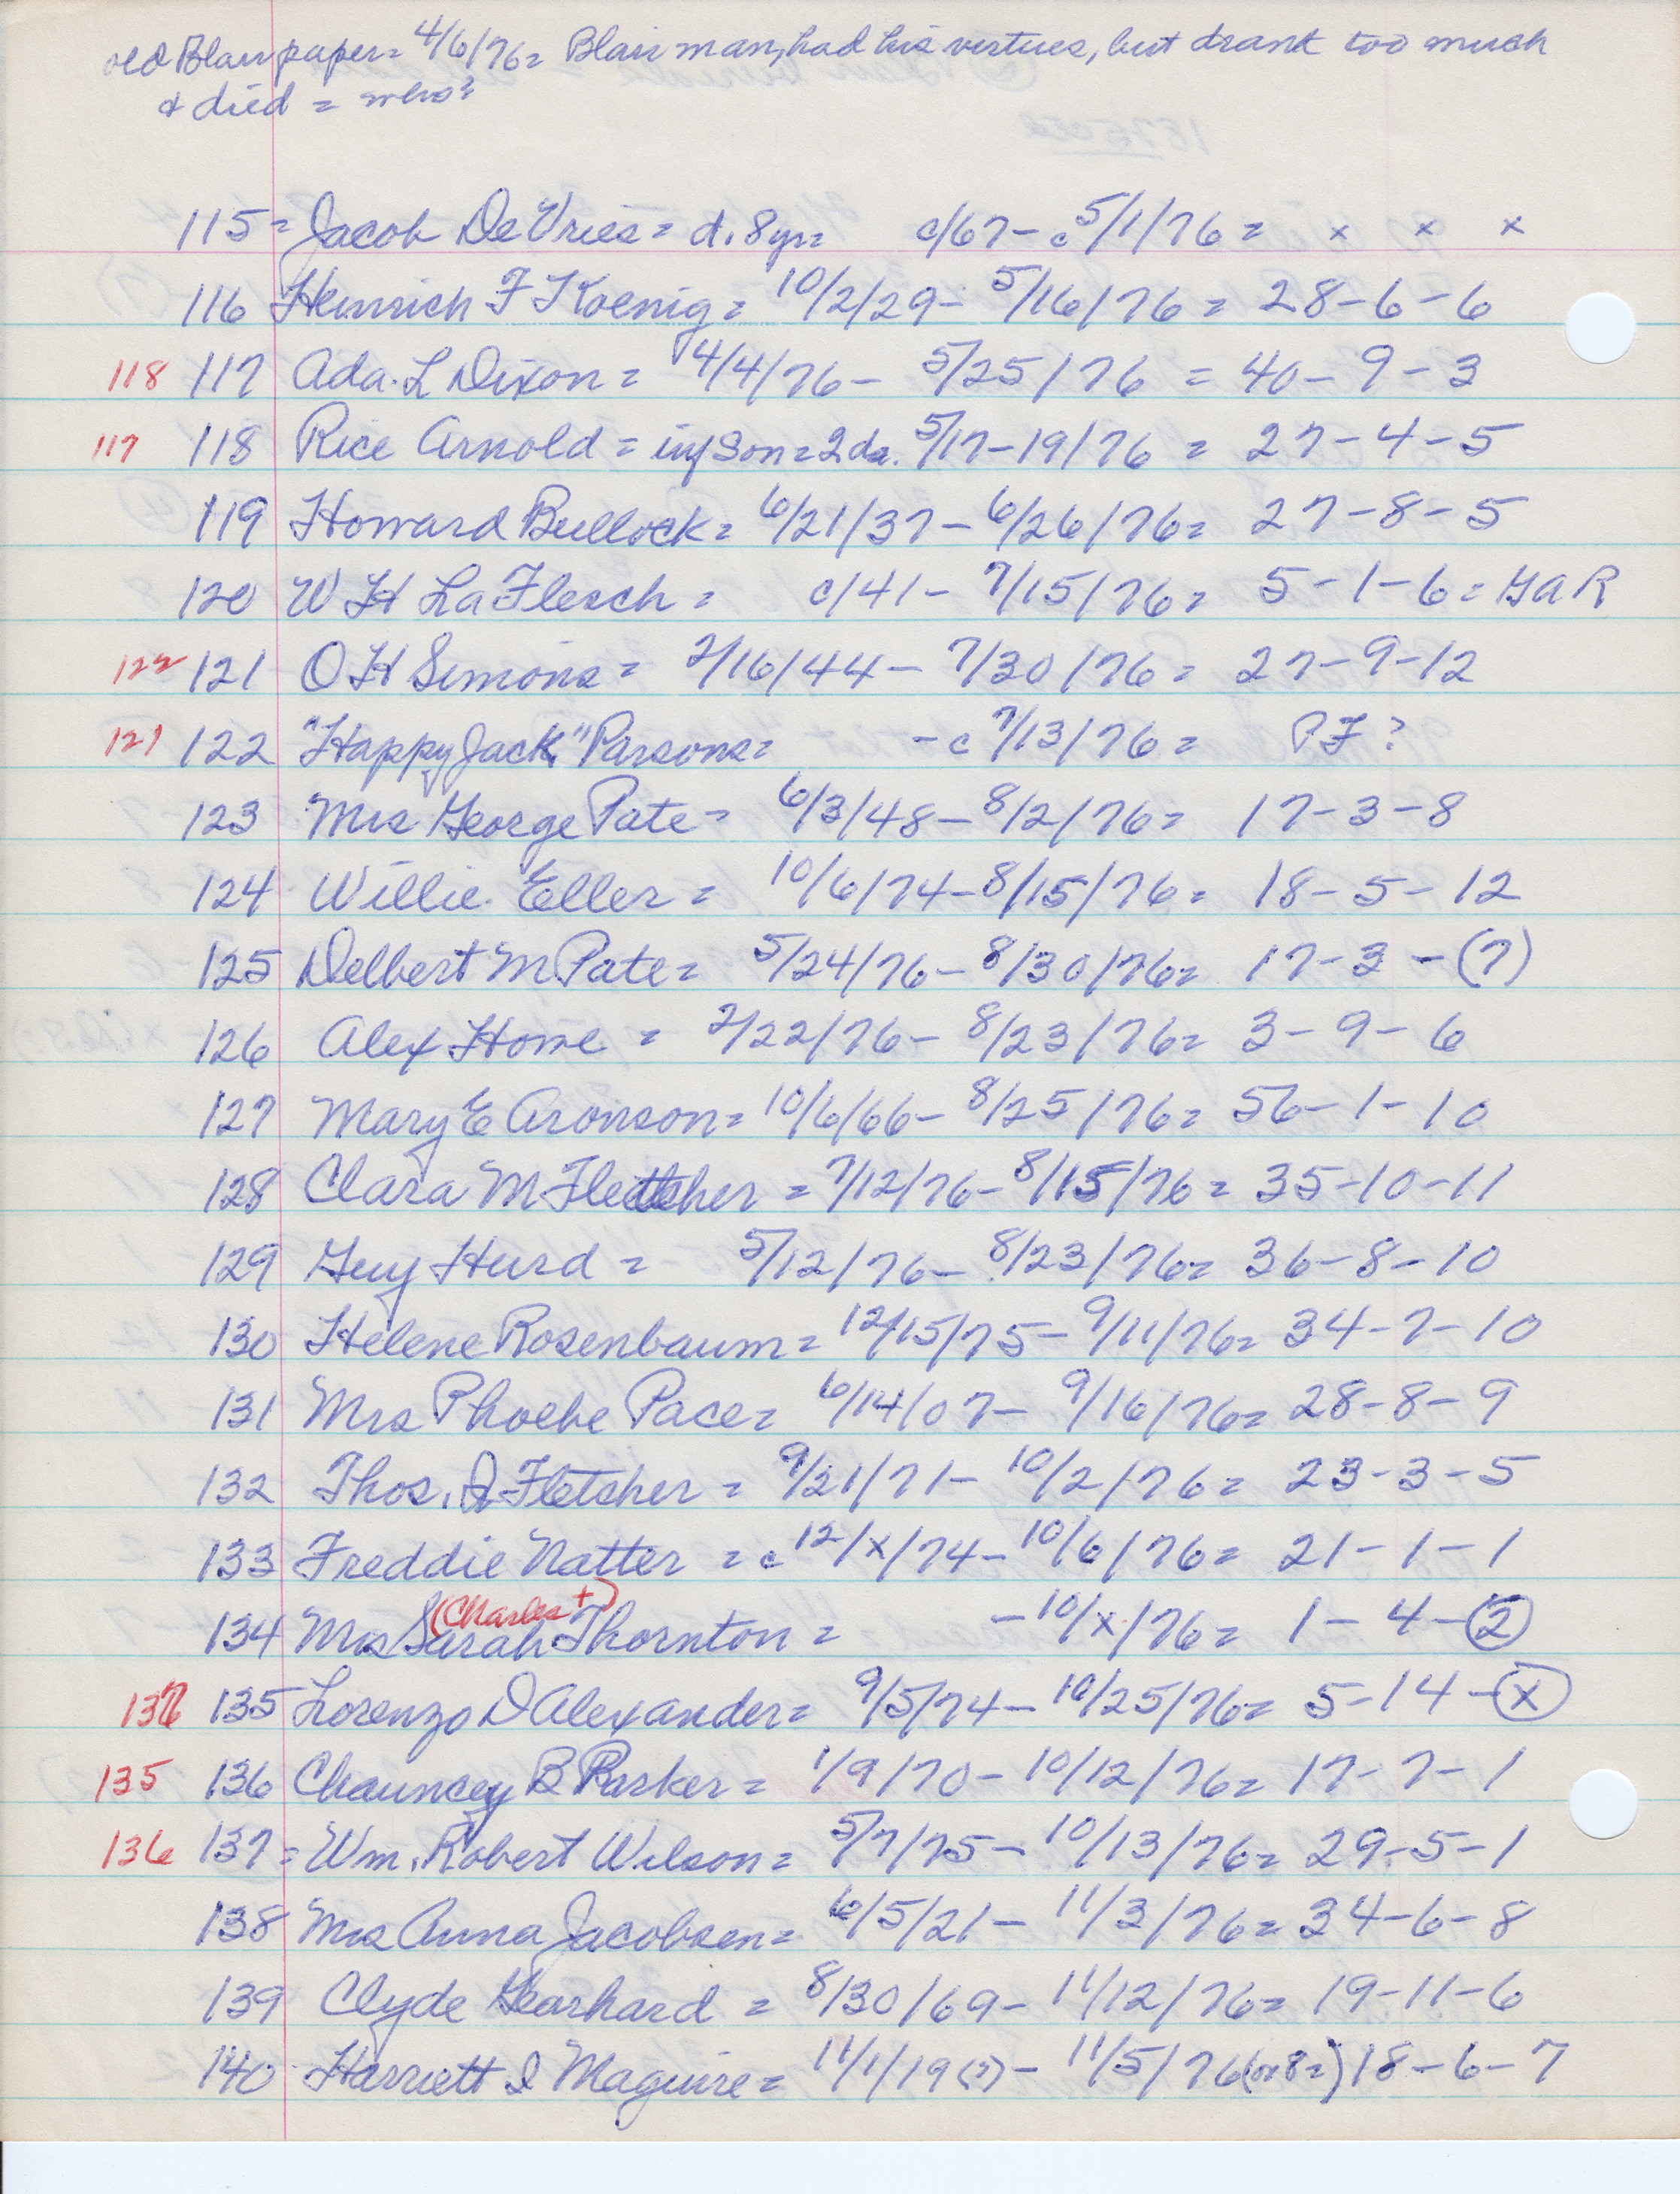 old Blair paper = 4/6/76 = Blair man, had his virtues, but drank too much
& died = who?
115 = Jacob DeVries = d. 8yr = c/67 - c5/1/76 = x x x
116 Heinrich F Koenig = 10/2/29 - 5/16/76 = 28-6-6
118 117 Ada. L Dixon = 4/4/76 - 5/25/76 = 40-9-3
117 118 Rice Arnold = inf son = 2 da. 5/17-19/76 = 27-4-5
119 Howard Bullock = 6/21/37 - 6/26/76 = 27-8-5
120 W H LaFlesch = c/41 - 7/15/76 = 5-1-6 = GAR
122 121 O H Simons = 2/16/44 - 7/30/76 = 27-9-12
121 122 "Happy Jack" Parsons = - c 7/13/76 = PF?
123 Mrs George Pate = 6/3/48 - 8/2/76 = 17-3-8
124 Willie Eller = 10/6/74 - 8/15/76 = 18-5-12
125 Delbert M Pate = 5/24/76 - 8/30/76 = 17-3-(7)
126 Alex Home = 2/22/76 - 8/23/76 = 3-9-6
127 Mary E Aronson = 10/6/66 - 8/25/76 = 56-1-10
128 Clara M Fletcher = 7/12/76 - 8/15/76 = 35-10-11
129 Guy Hurd = 5/12/76 - 8/23/76 = 36-8-10
130 Helene Rosenbaum = 12/15/75 - 9/11/76 = 34-7-10
131 Mrs Phoebe Pace = 6/14/07 - 9/16/76 = 28-8-9
132 Thos. Fletcher = 9/21/71 - 10/2/76 = 23-3-5
133 Freddie Natter = c 12/x/74 - 10/6/76 = 21-1-1
(Charles +)
134 Mrs Sarah Thornton = - 10/x/76 = 1-4-2
137 135 Lorenzo D Alexander = 9/5/74 - 10/25/76 = 5-14-x
135 136 Chauncey B Parker = 1/9/70 - 10/12/76 = 17-7-1
136 137 = Wm. Robert Wilson = 5/7/75 - 10/13/76 = 29-5-1
138 Mrs Anna Jacobsen = 6/5/21 - 11/3/76 = 34-6-8
139 Clyde Gearhard = 8/30/69 - 11/12/76 = 19-11-6
140 Harriett I Maguire = 11/1/19(?) - 11/5/76 (or 8=) 18-6-7